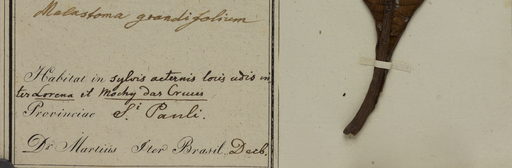 Melastoma grandifolium
Habitat in sylvis aeternis locis udis in
ter Lorena et Mochy das Cruces
Provinciae S.i Pauli.
Dr. Martius Iter Brasil. Decb.